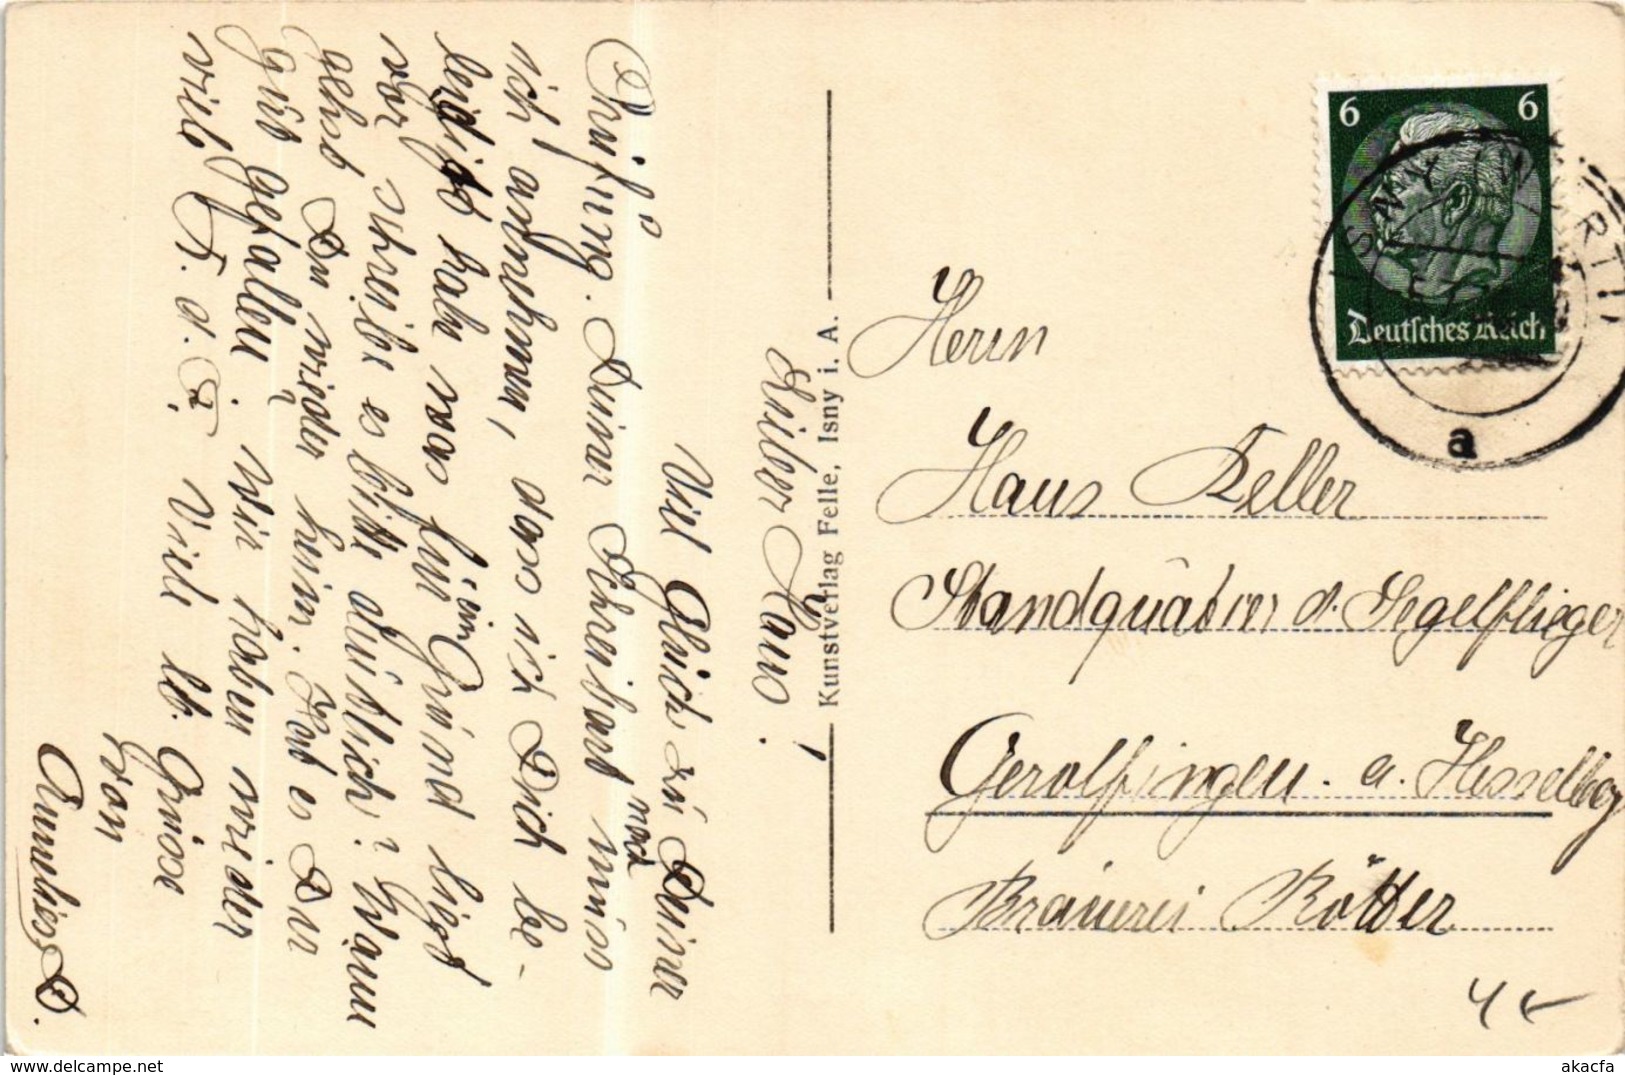 Lieber Hans!
Viel Glück zu Deiner
Prüfung. Deiner Schreibart nach muss
ich annehmen, dass ich Dich be-
leidigt habe was für ein Grund liegt
vor schreibe es bitte deutlich? Wann
gehst Du wieder heim. Hat es Dir
gut gefallen. Wir haben wieder
viele F. d. F. Viele lb. Grüsse
von
Annelies D.
Kunstverlag Felle, Isny i. A.
6 6
Deutsches Reich
ISNY (WÜRTT)
a
Herrn
Hans Keller
Standquatier d. Segelflieger
Gerolfingen a. Hesselberg
Brauerei Rötter
akacfa